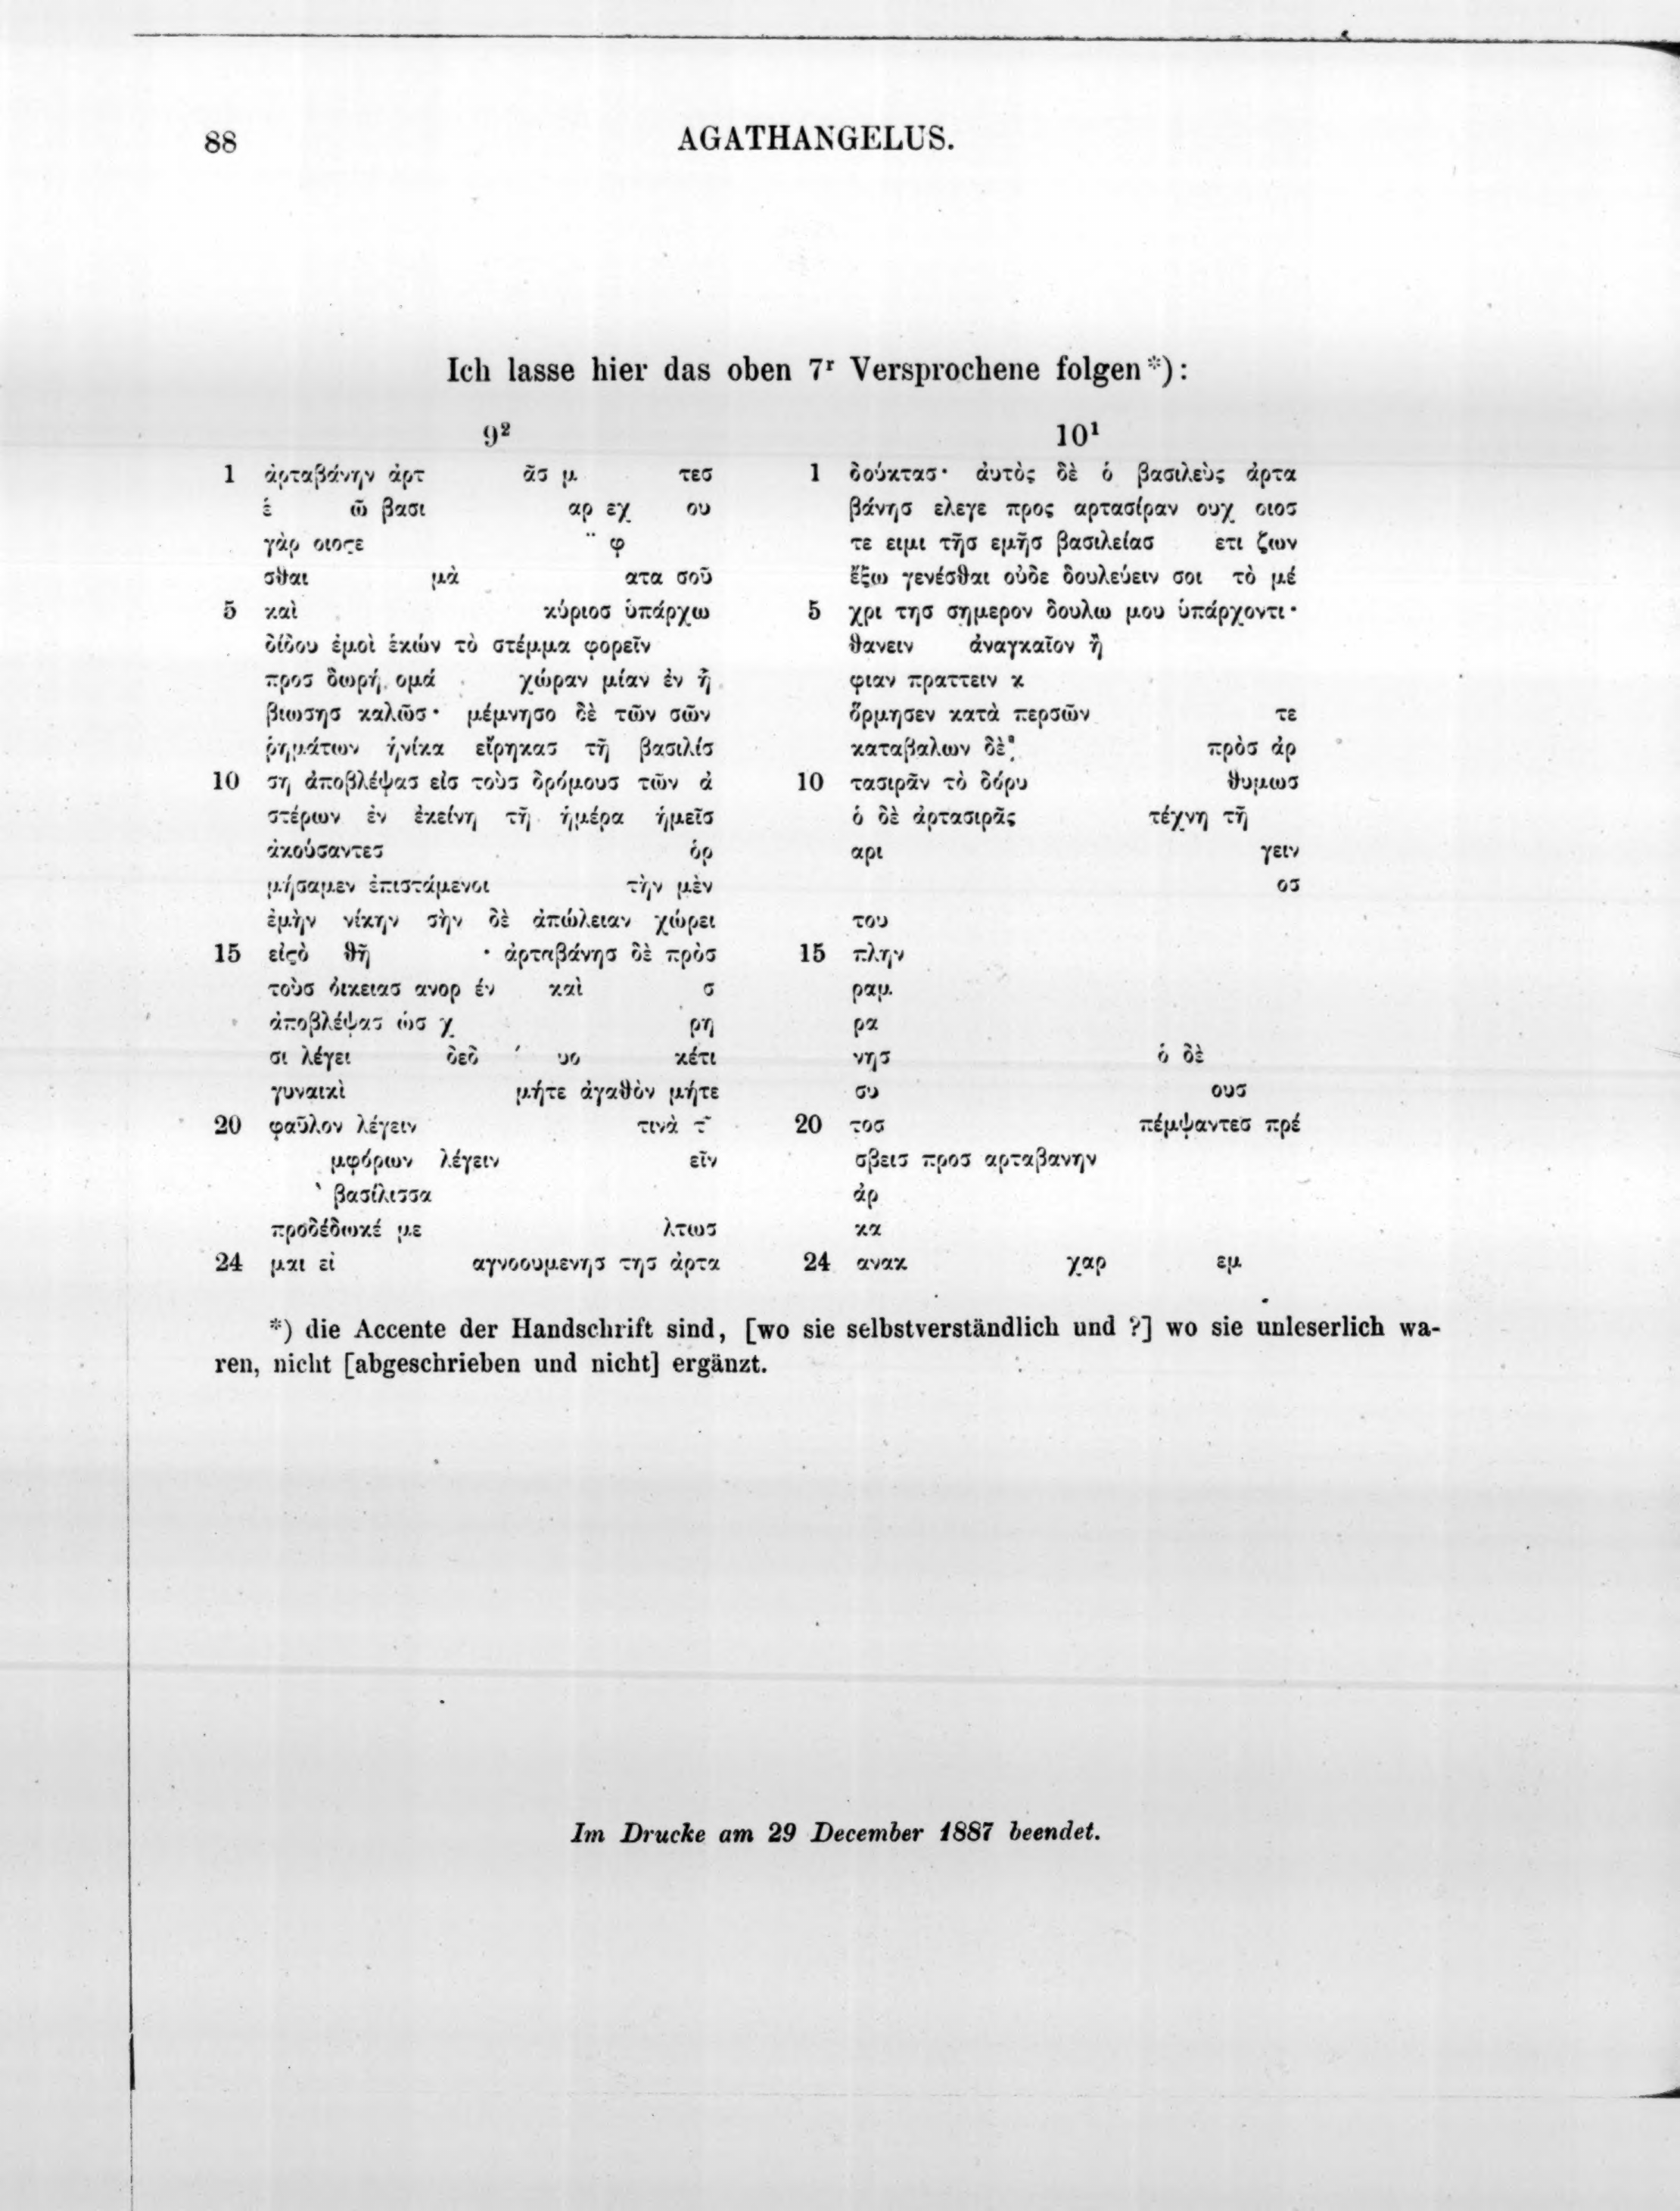 88
AGATHANGELUS.
Ich lasse hier das oben 7ʳ Versprochene folgen*):
9²
1 ἀρταβάνην ἀρτ ᾶσ μ τεσ
ἑ ῶ βασι αρ εχ ου
γὰρ οιοςε ¨ φ
σθαι μὰ ατα σοῦ
5 καὶ κύριοσ ὑπάρχω
δίδου ἐμοὶ ἑκών τὸ στέμμα φορεῖν
προσ δωρή ομά χώραν μίαν ἐν ἧ
βιωσησ καλῶσ· μέμνησο δὲ τῶν σῶν
ῥημάτων ἡνίκα εἴρηκασ τῆ βασιλίσ
10 ση ἀποβλέψασ εἰσ τοὺσ δρόμουσ τῶν ἀ
στέρων ἐν ἐκείνη τῆ ἡμέρα ἡμεῖσ
ἀκούσαντεσ ὁρ
μήσαμεν ἐπιστάμενοι τὴν μὲν
ἐμὴν νίκην σὴν δὲ ἀπώλειαν χώρει
15 εἰςὸ θῆ · ἀρταβάνησ δὲ πρὸσ
τοὺσ ὀικειασ ανορ έν καὶ σ
ἀποβλέψασ ὡσ χ ρη
σι λέγει δεδ ´ υο κέτι
γυναικὶ μήτε ἀγαθὸν μήτε
20 φαῦλον λέγειν τινὰ τ῀
μφόριων λέγειν εῖν
` βασίλισσα
προδέδωκέ με λτωσ
24 μαι εἰ αγνοουμενησ τησ ἀρτα
10¹
1 δούκτασ· ἀυτὸς δὲ ὁ βασιλεὺς ἀρτα
βάνησ ελεγε προς αρτασίραν ουχ οιοσ
τε ειμι τῆσ εμῆσ βασιλείασ ετι ζων
ἔξω γενέσθαι οὐδε δουλεύειν σοι τὸ μέ
5 χρι τησ σημερον δουλω μου ὑπάρχοντι·
θανειν ἀναγκαῖον ἢ
φιαν πραττειν κ
ὅρμησεν κατὰ περσῶν τε
καταβαλων δὲ πρὸσ ἀρ
10 τασιρᾶν τὸ δόρυ θυμωσ
ὁ δὲ ἀρτασιρᾶς τέχνη τῆ
αρι γειν
οσ
του
15 πλην
ραμ
ρα
νησ ὁ δὲ
συ ουσ
20 τοσ πέμψαντεσ πρέ
σβεισ προσ αρταβανην
ἀρ
κα
24 ανακ χαρ εμ
*) die Accente der Handschrift sind, [wo sie selbstverständlich und ?] wo sie unleserlich wa-
ren, nicht [abgeschrieben und nicht] ergänzt.
Im Drucke am 29 December 1887 beendet.